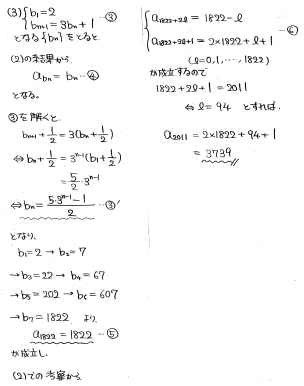 (3) { b₁=2
bₙ₊₁=3bₙ+1 …③
となる{bₙ}をとると
(2)の結果から
a_{bₙ}=bₙ…④
となる。
③を解くと、
bₙ₊₁+1/2=3(bₙ+1/2)
⇔bₙ+1/2=3ⁿ⁻¹(b₁+1/2)
=5/2・3ⁿ⁻¹
⇔bₙ=(5・3ⁿ⁻¹-1)/2 …③'
となり、
b₁=2→b₂=7
→b₃=22→b₄=67
→b₅=202→b₆=607
→b₇=1822 より、
a₁₈₂₂=1822…⑤
が成立し、
(2)での考察から
{ a_{1822+2ℓ}=1822-ℓ
a_{1822+2ℓ+1}=2×1822+ℓ+1 …⑥
(ℓ=0,1,…,1822)
が成立するので
1822+2ℓ+1=2011
⇔ℓ=94 とすれば、
a₂₀₁₁=2×1822+94+1
=3739